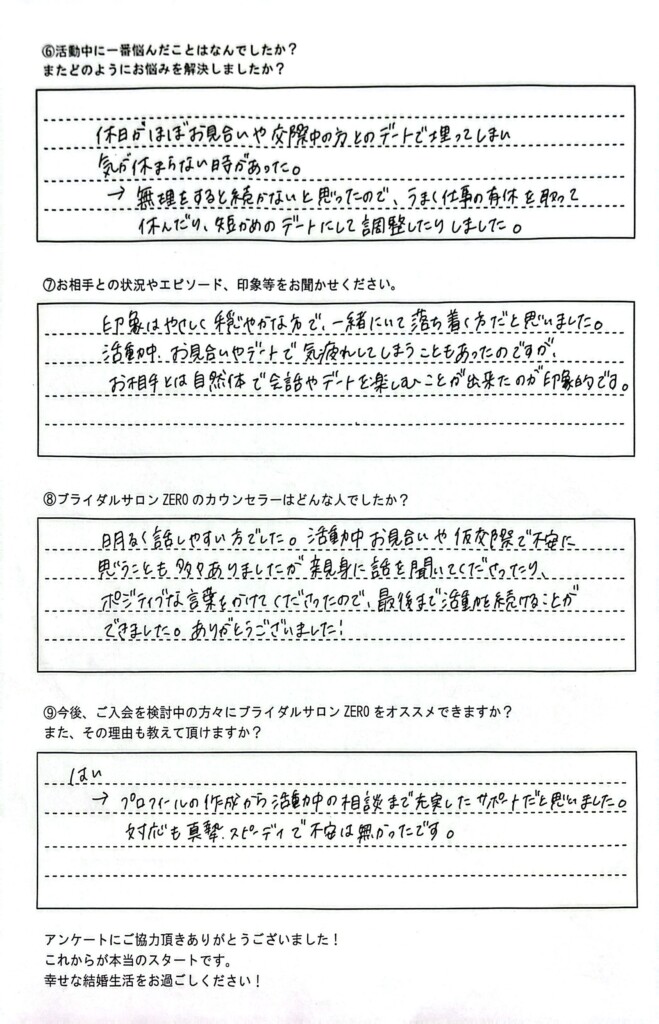 ⑥活動中に一番悩んだことはなんでしたか？
またどのようにお悩みを解決しましたか？
休日がほぼお見合いや交際中の方とのデートで埋ってしまい
気が休まらない時があった。
→ 無理をすると続かないと思ったので、うまく仕事の有休を取って
休んだり、短かめのデートにして調整したりしました。
⑦お相手との状況やエピソード、印象等をお聞かせください。
印象はやさしく穏やかな方で、一緒にいて落ち着く方だと思いました。
活動中、お見合いやデートで気疲れしてしまうこともあったのですが、
お相手とは自然体で会話やデートを楽しむことが出来たのが印象的です。
⑧ブライダルサロン ZERO のカウンセラーはどんな人でしたか？
明るく話しやすい方でした。活動中お見合いや仮交際で不安に
思うことも多々ありましたが親身に話を聞いてくださったり、
ポジティブな言葉をかけてくださったので、最後まで活動を続けることが
できました。ありがとうございました！
⑨今後、ご入会を検討中の方々にブライダルサロン ZERO をオススメできますか？
また、その理由も教えて頂けますか？
はい
→ プロフィールの作成から活動中の相談まで充実したサポートだと思いました。
対応も真摯、スピーディで不安は無かったです。
アンケートにご協力頂きありがとうございました！
これからが本当のスタートです。
幸せな結婚生活をお過ごしください！